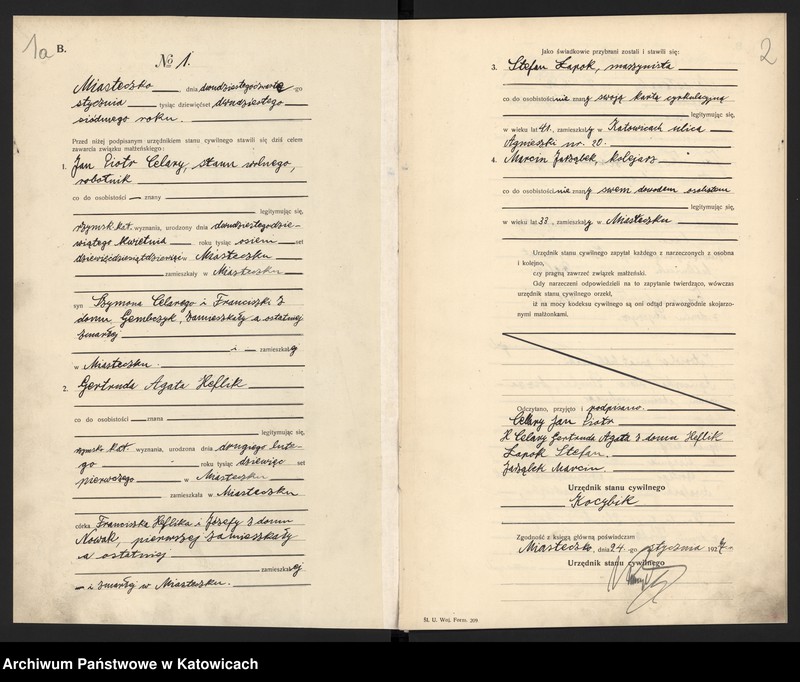 1a B.
№ 1.
Miasteczko, dnia dwudziestegoczwartego -go
stycznia tysiąc dziewięćset dwudziestego
siódmego roku.
Przed niżej podpisanym urzędnikiem stanu cywilnego stawili się dziś celem
zawarcia związku małżeńskiego:
1. Jan Piotr Celary, stanu wolnego,
robotnik
co do osobistości — znany
legitymując się,
rzymsk. kat. wyznania, urodzony dnia dwudziestegodzie-
wiątego kwietnia roku tysiąc osiem set
dziewięćdziesiątdziewięć w Miasteczku
zamieszkały w Miasteczku
syn Szymona Celarego i Franciszki z
domu Gembczyk, zamieszkały a ostatniej
zmarłej
i — zamieszkałej
w Miasteczku.
2. Gertruda Agata Heflik
co do osobistości — znana
legitymując się,
rzymsk. kat. wyznania, urodzona dnia drugiego lute-
go roku tysiąc dziewięć set
pierwszego w Miasteczku
zamieszkała w Miasteczku
córka Franciszka Heflika i Józefy z domu
Nowak, pierwszej zamieszkały
a ostatniej
zamieszkałej
— i zmarłej w Miasteczku.
2
Jako świadkowie przybrani zostali i stawili się:
3. Stefan Łapok, maszynista
co do osobistości nie znany swoją kartą cyrkulacyjną
legitymując się,
w wieku lat 41, zamieszkały w Katowicach ulica
Agnieszki nr. 20.
4. Marcin Jarząbek, kolejarz
co do osobistości nie znany swem dowodem osobistem
legitymując się,
w wieku lat 33, zamieszkały w Miasteczku
Urzędnik stanu cywilnego zapytał każdego z narzeczonych z osobna
i kolejno,
czy pragną zawrzeć związek małżeński.
Gdy narzeczeni odpowiedzieli na to zapytanie twierdząco, wówczas
urzędnik stanu cywilnego orzekł,
iż na mocy kodeksu cywilnego są oni odtąd prawozgodnie skojarzo-
nymi małżonkami.
Odczytano, przyjęto i podpisano.
Celary Jan Piotr
Celary Gertruda Agata z domu Heflik
Łapok Stefan.
Jarząbek Marcin.
Urzędnik stanu cywilnego
Kocybik
Zgodność z księgą główną poświadczam
Miasteczko, dnia 24. -go stycznia 1927
Urzędnik stanu cywilnego
Śl. U. Woj. Form. 209
Archiwum Państwowe w Katowicach